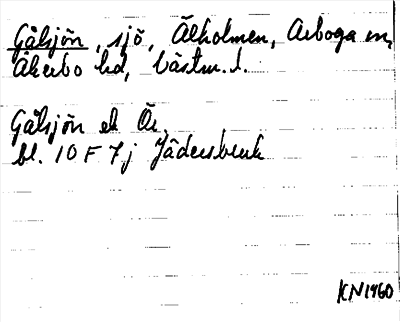 Gälsjön, sjö, Älholmen, Arboga sn,
Åkerbo hd, Västm. l.
Gälsjön ek Ör
bl. 10 F 7 j Jädersbruk
KN 1960